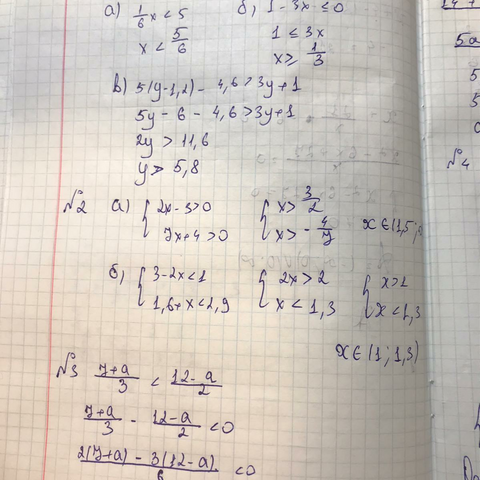 а) 1/6 x < 5
x < 5/6
б) 1 - 3x ≤ 0
1 ≤ 3x
x ≥ 1/3
в) 5(y-1,2) - 4,6 > 3y+1
5y - 6 - 4,6 > 3y+1
2y > 11,6
y > 5,8
№2 а) { 2x - 3 > 0 { x > 3/2
7x + 4 > 0 x > - 4/7 x ∈ (1,5;
б) { 3 - 2x < 1 { 2x > 2 { x > 1
1,6 + x < 2,9 x < 1,3 x < 1,3
x ∈ (1; 1,3)
№3 7+a/3 < 12-a/2
7+a/3 - 12-a/2 < 0
2(7+a) - 3(12-a)/6 < 0
5a
5
5
№4